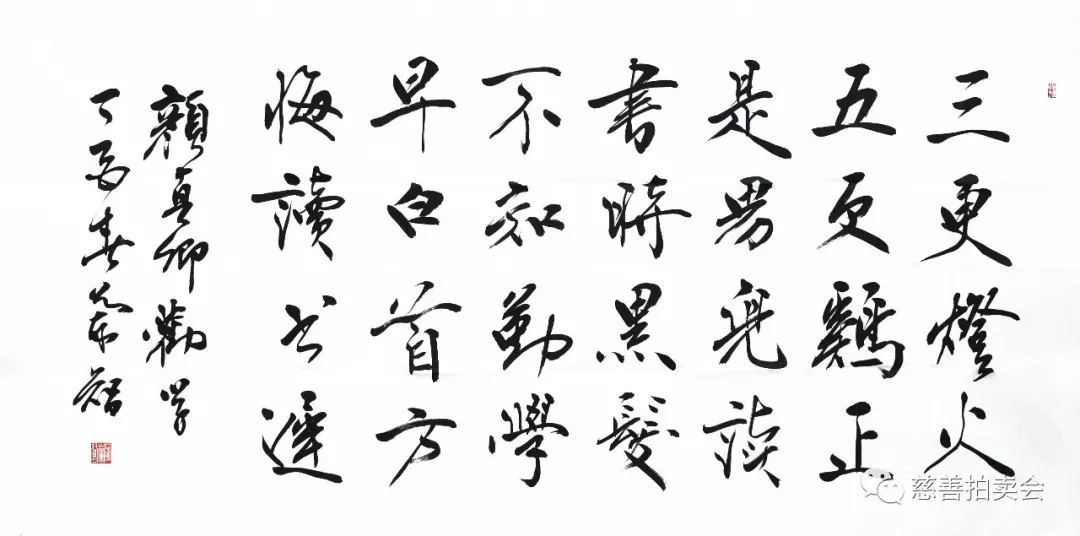 三更燈火
五更鷄正
是男兒读
書時黑髮
不知勤學
早白首方
悔讀书遲
顏真卿勸学
丁酉春
慈善拍卖会